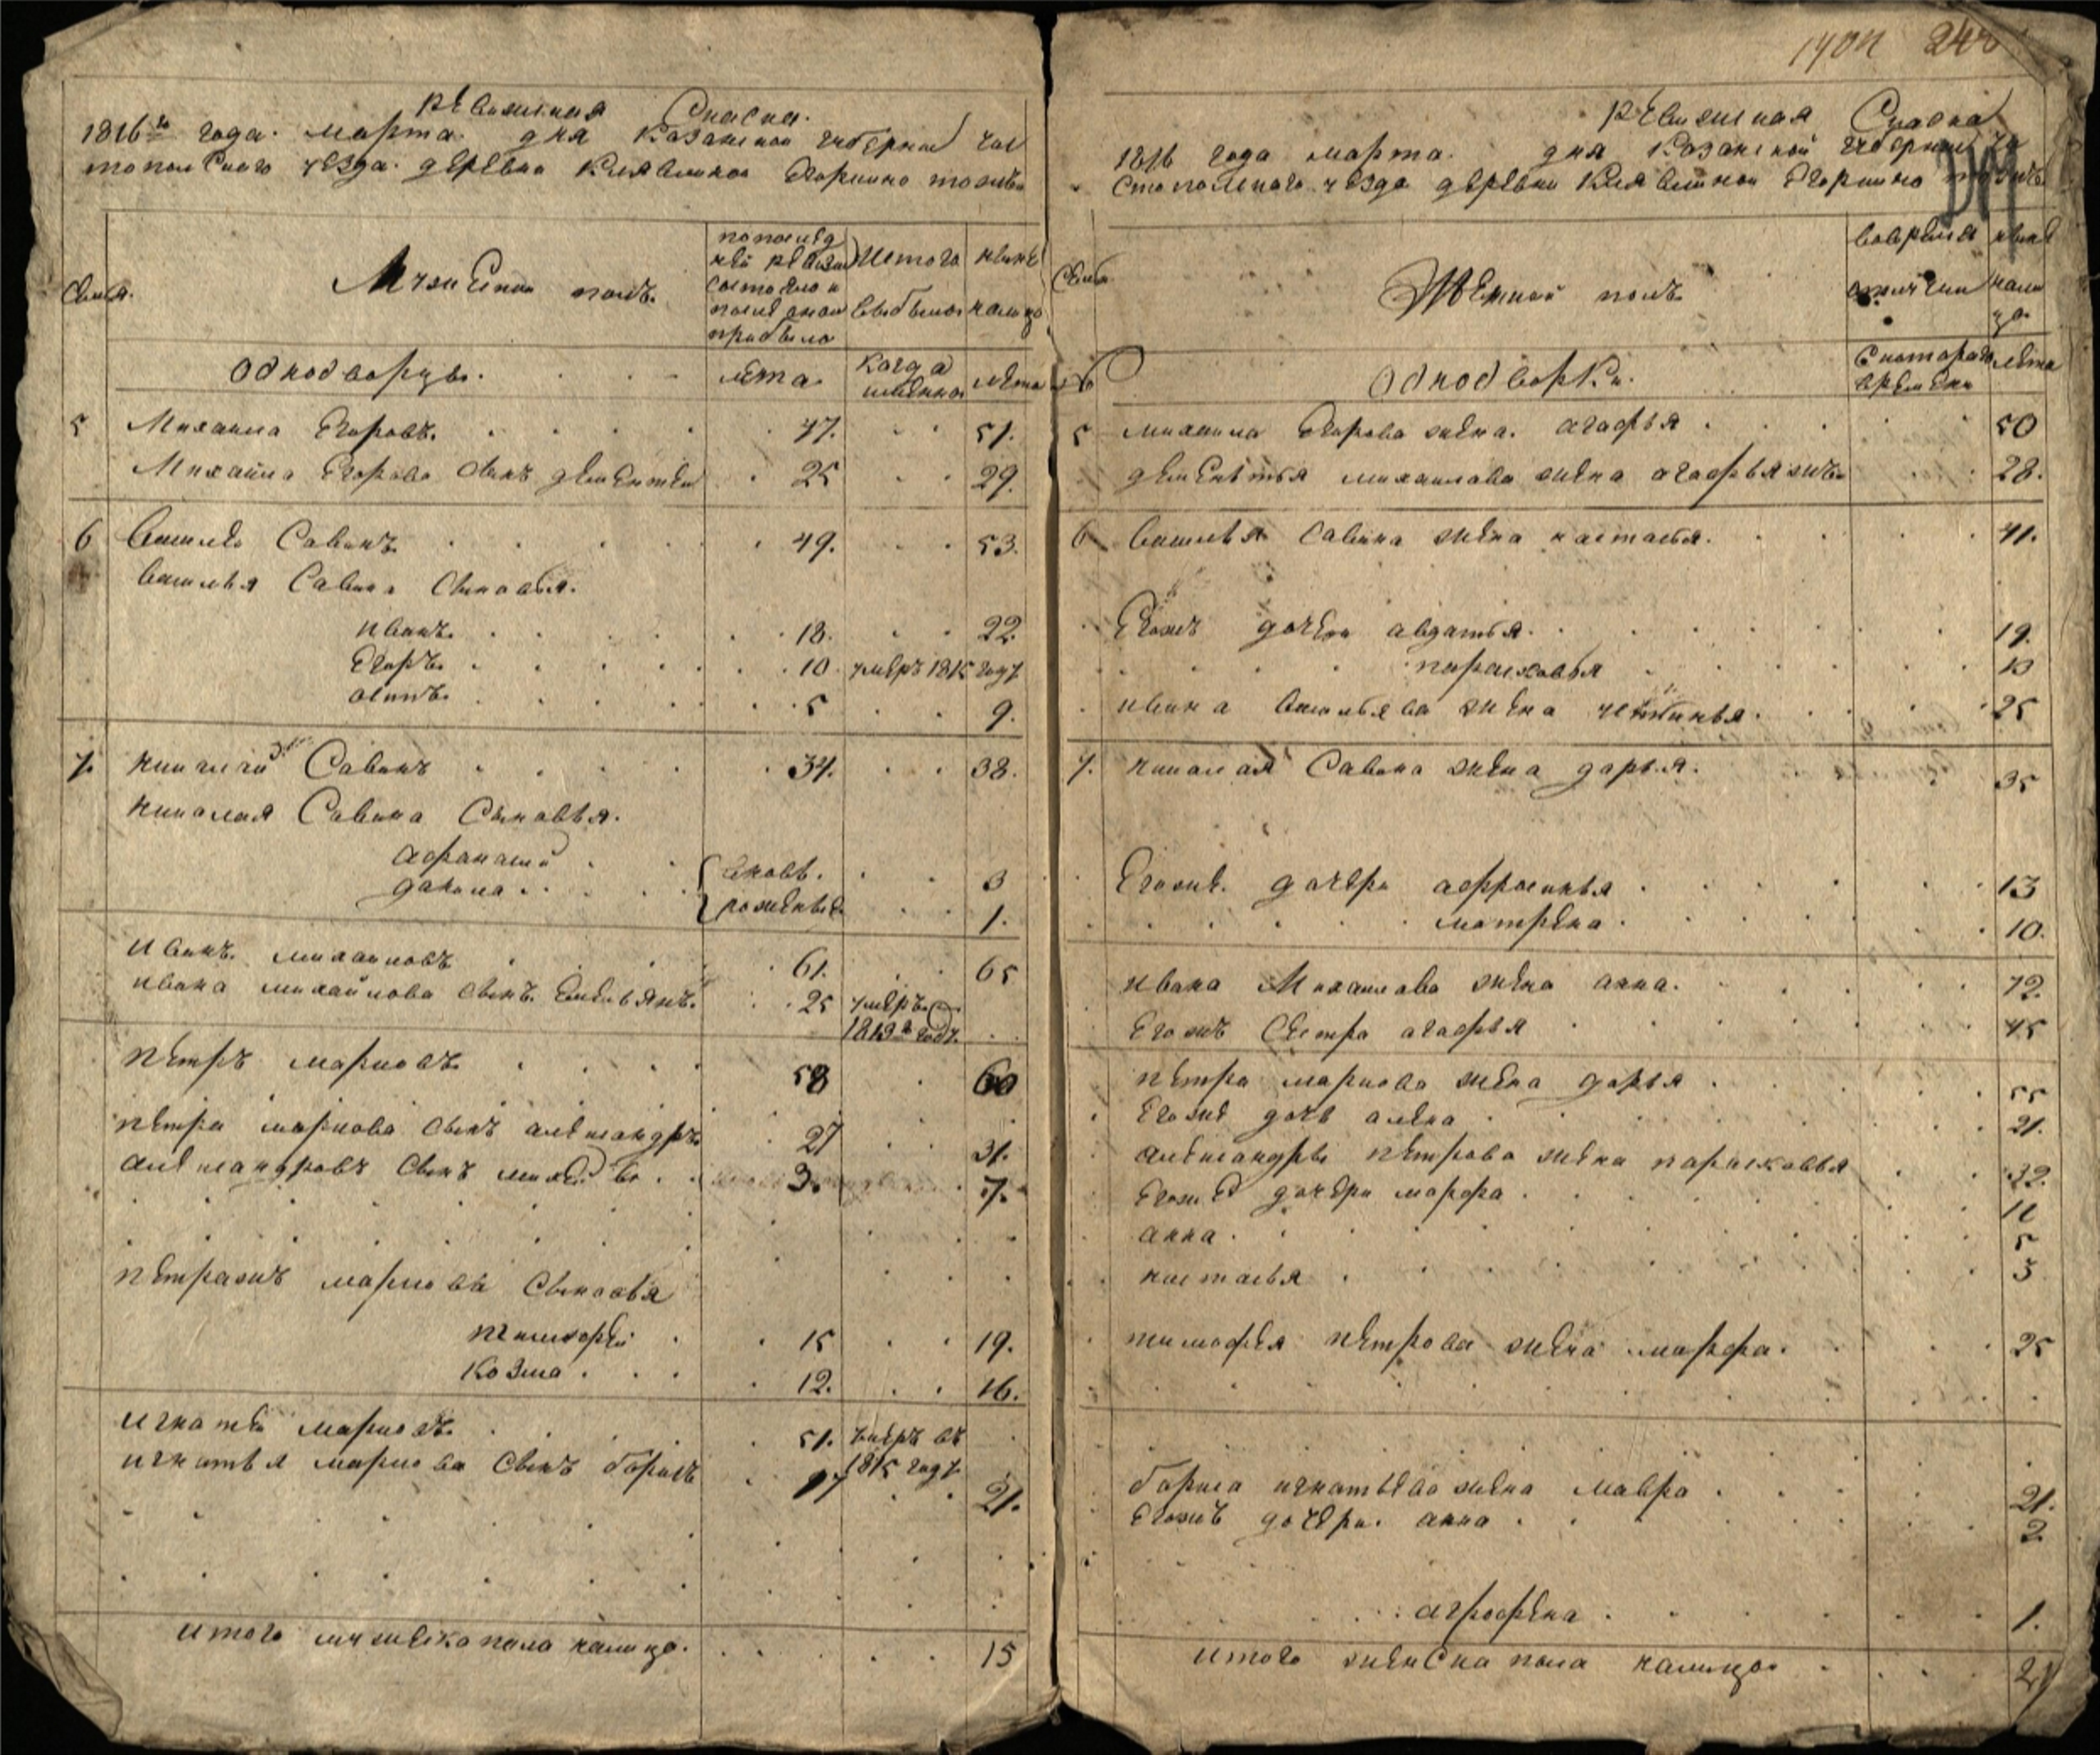 ревизская Сказка.
1816го года. марта. дня Казанской губернии Чис
топольскаго уезда. деревни Кия Егоркино тожъ
Семьи. Мужеской полъ. по послед
ней ревизи
состояло и
после оной
прибыло Ис того
выбыло ныне
налицо
однодворцы. лета. когда
имянно лета
5 Михаила Егоровъ. 47. 51.
Михаила Егорова сынъ дементей 25 29.
6 василей Савинъ. 49. 53.
василья Савина сыновья.
иванъ. 18. 22.
Егоръ. 10. умеръ 1815 году
осипъ. 5 9.
7. николай Савинъ 34. 38.
николая Савина Сыновья.
афанасей вновь. 3
данила. рожденые 1.
иванъ михаиловъ 61. 65
ивана михайлова сынъ. Емельянъ. 25 умеръ
1813го году.
петръ марковъ. 58 60
петра маркова сынъ александръ 27 31.
александровъ сынъ михей 3. 7.
петра жъ маркова сыновья
тимофей 15 19.
козма. 12. 16.
игнатей марковъ. 51. умеръ въ
1815 году
игнатья маркова сынъ борисъ 17 21.
итого мужеска пола налицо. 15
ревизская Сказка
1816 года марта. дня Казанской губернии Чи
стопольскаго уезда деревни Кия Егоркино тожъ
Семьи Женской полъ во времен
отлучки ныне
нали
цо.
однодворки. с котораго
времени лета
5 михаила Егорова жена. агафья 50
дементья михаилова жена агафья жъ 28.
6 василья Савина жена настасья. 41.
Егожъ дочери авдотья. 19.
парасковья 10
ивана васильева жена устинья. 25
7. николая Савина жена дарья. 35
Егоже. дочери афросинья 13
матрена. 10.
ивана Михаилова жена анна. 72.
Егожъ сестра агафья 45
петра маркова жена дарья 55
Егоже дочь алена 21.
александры петрова жена парасковья 32.
Егоже дочери марфа 11
анна. 5
настасья 3
тимофея петрова жена марфа. 25
бориса игнатьева жена мавра 21.
Егожъ дочери. анна 2
аграфена 1.
итого женска пола налицо 21